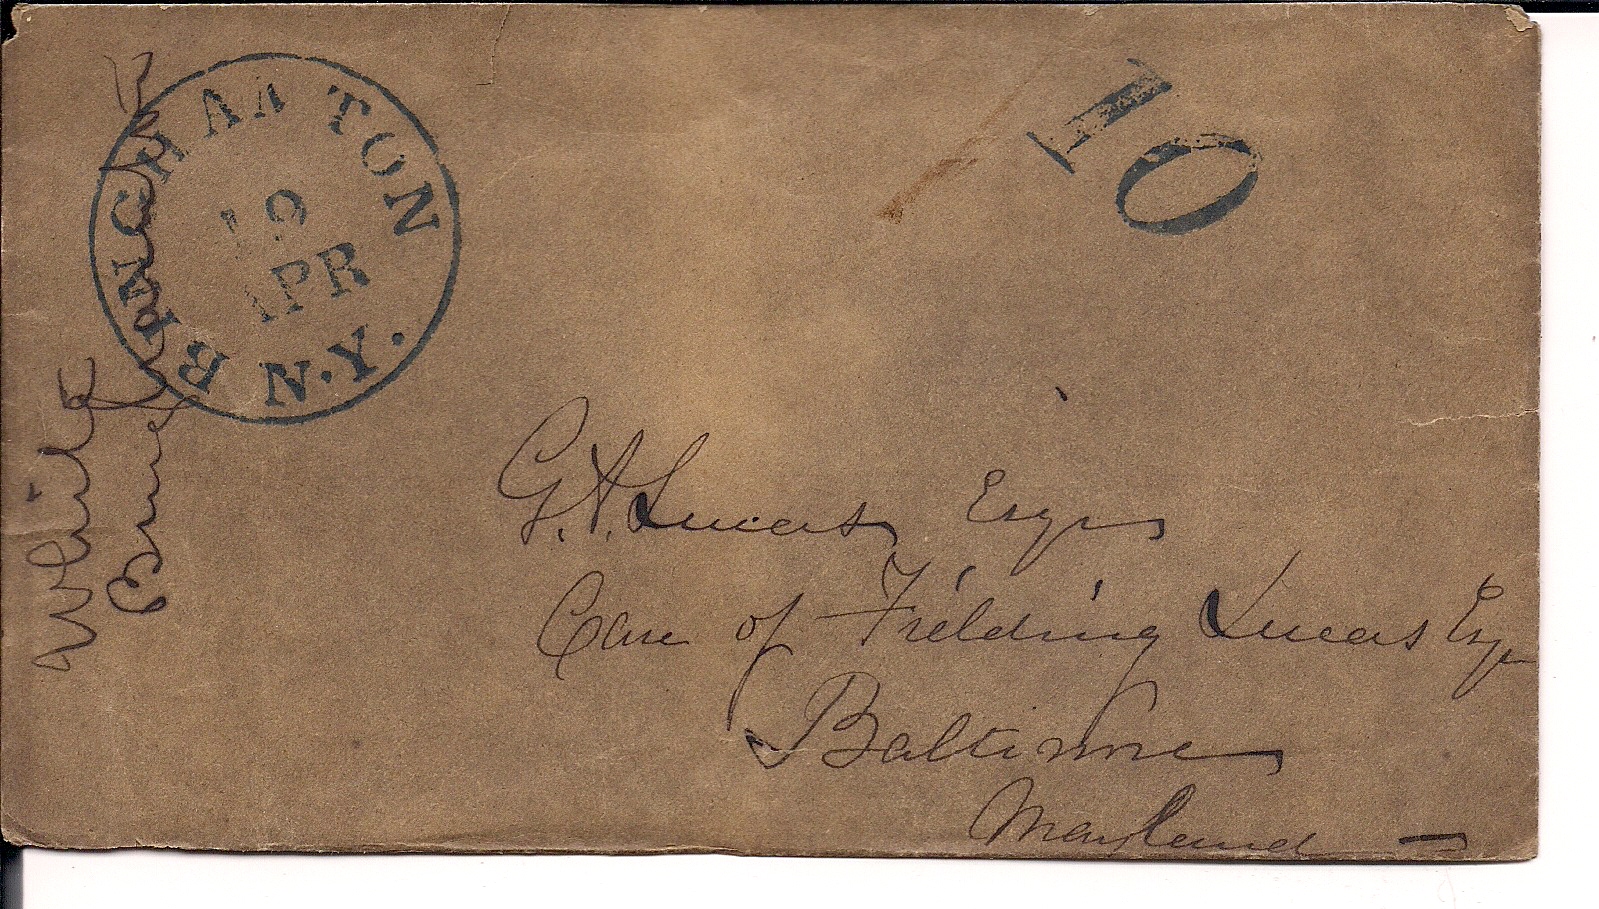 BINGHAMTON
19
APR
N.Y.
10
White
G. A. Lucas Esqr
Care of Fielding Lucas Esqr
Baltimore
Maryland